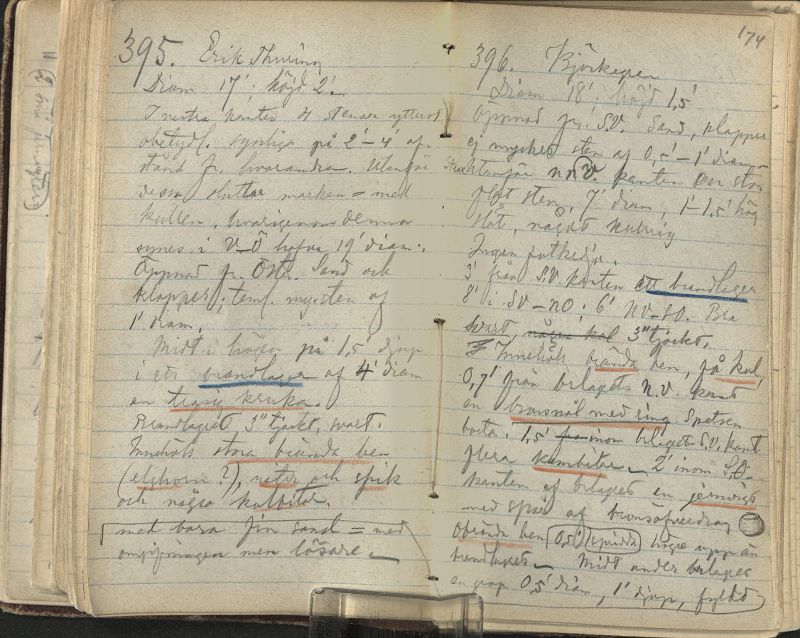 395. Erik Thuring
Diam 17'; höjd 2'.
I nästra kanten 4 stenar ytterst
obetydl. synliga på 2'-4' af-
stånd fr. hvarandra. Utanför
dessa sluttar marken = med
kullen, hvarigenom denna
synes i V-Ö hafva 19' diam.
Öppnad fr. Öster. Sand och
klapper, teml. myc. sten af
1' diam.
Midt i högen på 1,5' djup
i ett brandlager af 4' diam
en trasig kruka.
Brandlagret 3" tjockt, svart.
Innehöll stora brända ben
(elghorn?), nitar och spik
och några kolbitar.
med bara fin sand = med
omgifningen men lösare.
174
396. Björkegren
Diam 18'; höjd 1,5'
Öppnad fr. S.V. Sand, klapper
ej mycket sten af 0,5'-1' diam.
Strax utanför n.v. kanten en stor
sten, 7' diam, 1'-1,5' hög
slät, något kullrig
Ingen fotkedja.
3' från S.V. kanten ett brandlager
8' i SV-NO; 6' NV-SO. Bra
svart, några kol 3" tjockt.
Innehöll brända ben, få kol,
0,7' från belagets n.v. kant
en bronsnål med ring. Spetsen
borta. 1,5' inom belaget S.V. kant
flera kambitar. 2' inom S.O.
kanten af belaget en
med spår af
obrända ben 0,5' spridda högre upp än
brandlagret. Midt under belaget
en grop 0,5' diam, 1' djup, fylld